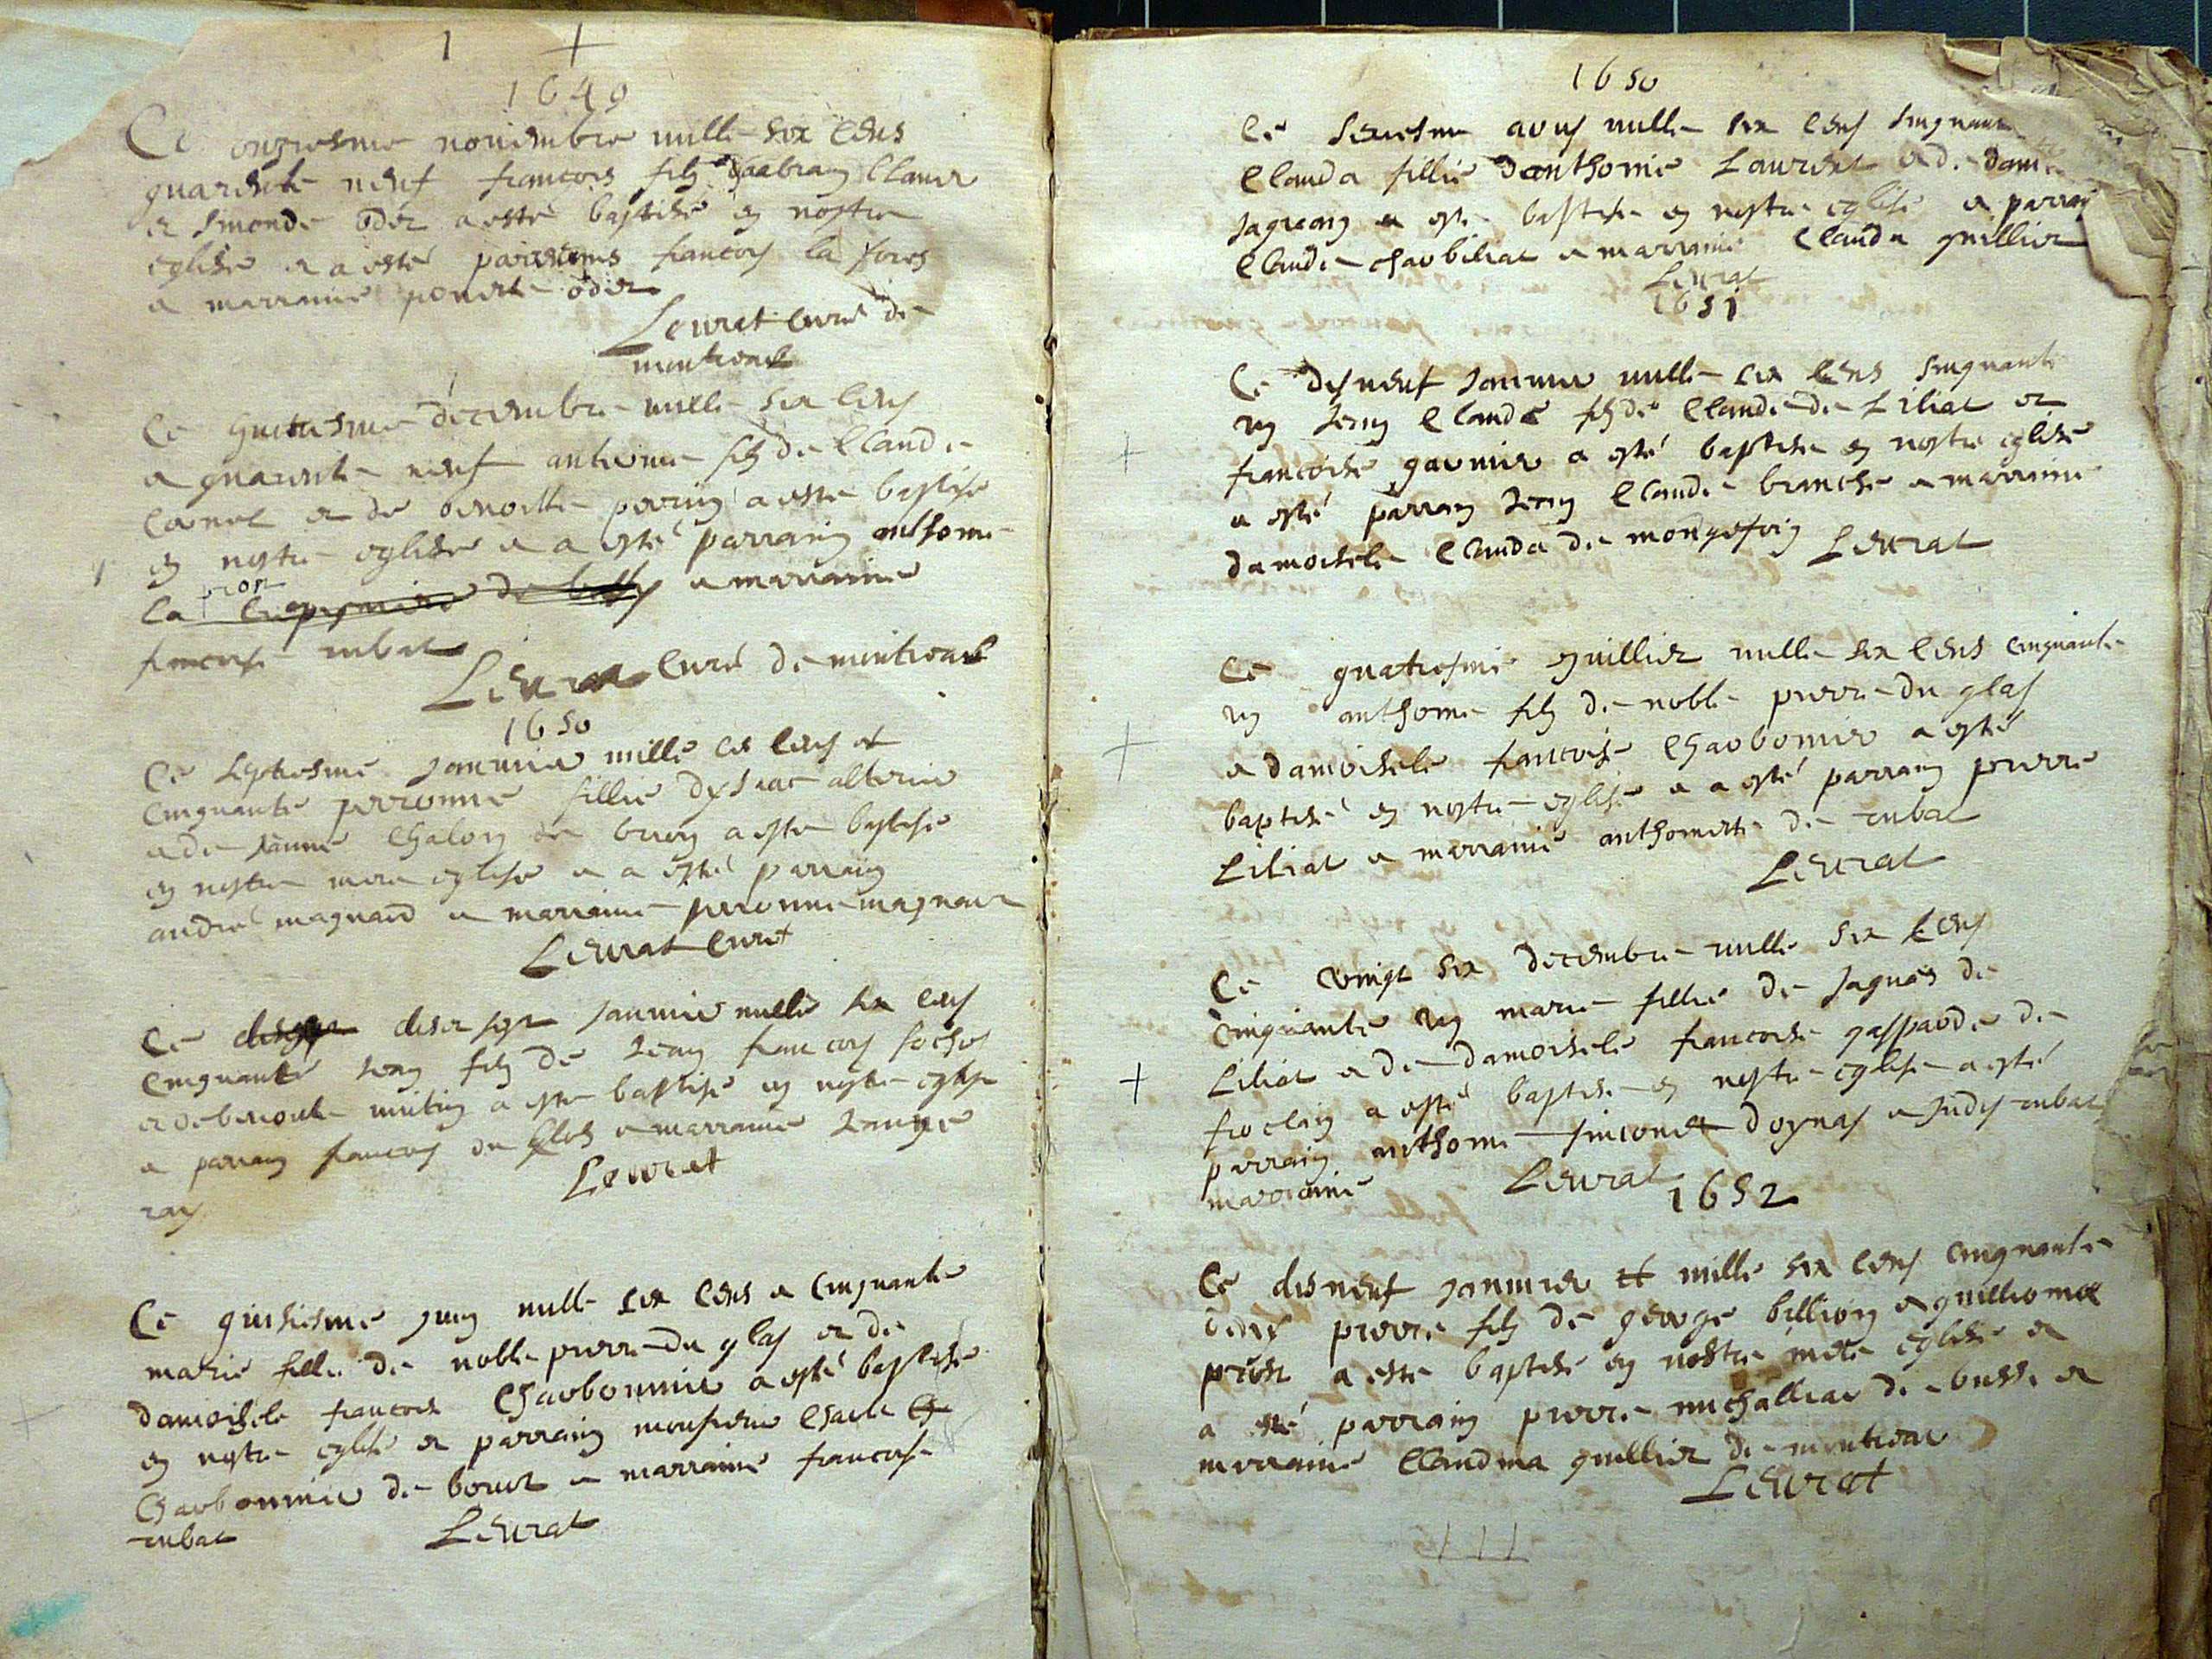 1 +
1649
Ce onziesme nouembre mille six cens
quarente neuf francois filz dabram Clauir
et Emonde oder a esté baptisé en nostre
eglise et a esté parrains francois la fores
et marraine ponette oder
Leurat curé de
montreal
Ce huitiesme decembre mille six cens
et quarente neuf antoine filz de Claude
Carnet et de benoitte perrin a esté baptisé
en nostre eglise et a esté parrain anthoine
la et marraine
francoise rubat
Leurat Curé de montreal
1650
Ce septiesme januier mille six cens et
cinquante perronne fillie dysaac
et de janne Chalon de brion a esté baptisé
en nostre mere eglise et a esté parrain
andré magnard et marraine perronne magnard
Leurat Curé
Ce diset sept januier mille six cens
cinquante Jean filz de Jean francois sochos
et de benoite mutin a esté baptisé en nostre eglise
et parrain francois du glas et marraine Janne
ray
Leurat
Ce quisiesme juin mille six cens et cinquante
marie fille de noble pierre du glas et de
damoisele francoise Charbonnier a esté baptisée
en nostre eglise et parrain monsieur
Charbonnier de bourt et marraine francoise
rubat Leurat
1650
Ce seziesme aous mille six cens sinquan
Clauda fillie danthoine Laurent et de dam
a esté baptisée en nostre eglise et parrain
Claude charbiliat et marraine Clauda guillier
Leurat
1651
Ce disneuf januier mille six cens sinquante
un Jean Claude filz de Claude de Liliat et
francoise garnier a esté baptisé en nostre eglise
a esté parrain Jean Claude branche et marraine
damoisele Clauda de mongefon Leurat
Ce quatriesme juillier mille six cens cinquante
un anthoine filz de noble pierre du glas
et damoisele francoise Charbonnier a esté
baptisé en nostre eglise et a esté parrain pierre
Liliat et marraine anthoinette de rubat
Leurat
Ce vingt six decembre mille six cens
cinquante un marie fillie de Jaques de
Liliat et de damoisele francoise gasparde de
froclain a esté baptisée en nostre eglise a esté
parrain anthoine simonet doynas et Judis rubat
marraine Leurat
1652
Ce disneuf januier mille six cens cinquante
deux pierre filz de george billion et guillioma
prost a esté baptisé en nostre mere eglise et
a esté parrain pierre michalliar de busse et
marraine Claudina guillier de montreal
Leurat